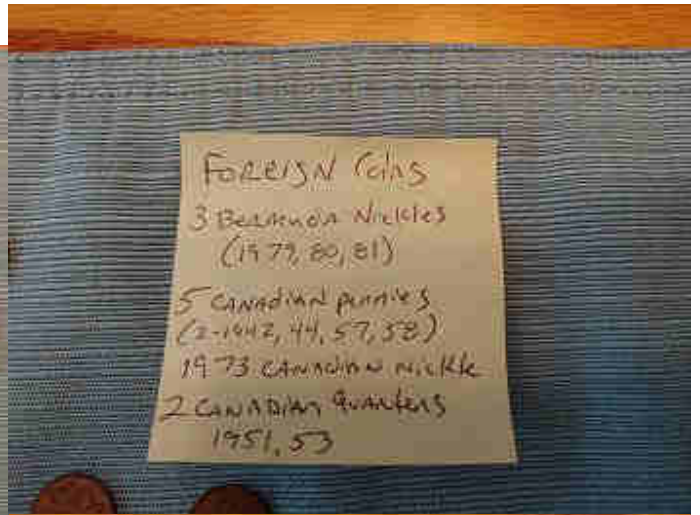 FOREIGN Coins
3 BERMUDA Nickles
(1979, 80, 81)
5 CANADIAN pennies
(2-1942, 44, 57, 58)
1973 CANADIAN Nickle
2 CANADIAN Quarters
1951, 53